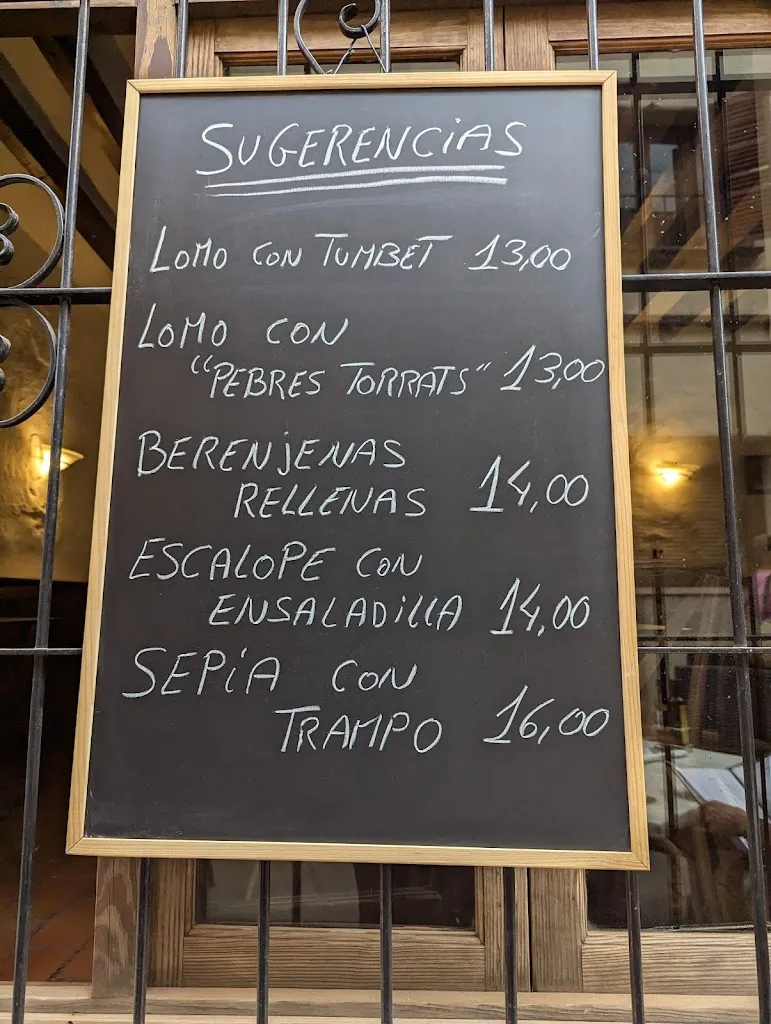 SUGERENCIAS
LOMO CON TUMBET 13,00
LOMO CON
"PEBRES TORRATS" 13,00
BERENJENAS
RELLENAS 14,00
ESCALOPE CON
ENSALADILLA 14,00
SEPIA CON
TRAMPO 16,00